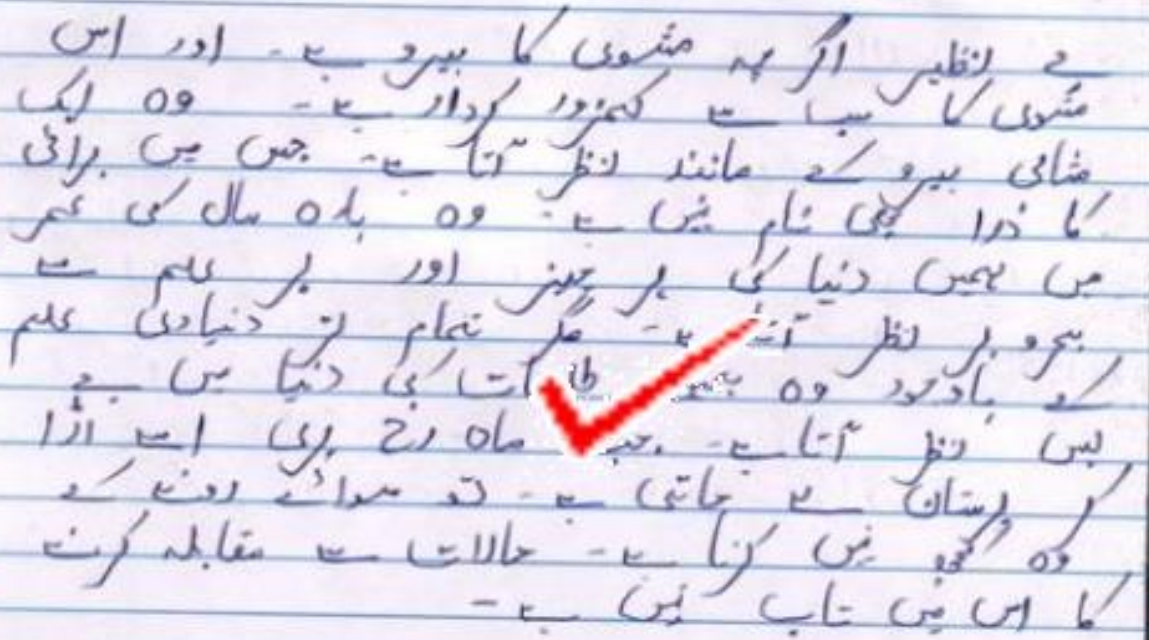 بے نظیر اگر چہ مثنوی کا ہیرو ہے۔ اور اس
مثنوی کا سب سے کمزور کردار ہے۔ وہ ایک
مثالی ہیرو کے مانند نظر آتا ہے۔ جس میں برائی
کا ذرا بھی نام نہیں ہے۔ وہ بارہ سال کی عمر
میں ہمیں دنیا کی ہر چیز اور ہر علم سے
بہرہ ور نظر آتا ہے۔ مگر تمام تر دنیاوی علم
کے باوجود وہ کی دنیا میں بے
بس نظر آتا ہے۔ جب ماہ رخ پری اسے اڑا
کر پرستان لے جاتی ہے۔ تو سوائے رونے کے
وہ کچھ نہیں کرتا ہے۔ حالات سے مقابلہ کرنے
کا اس میں تاب نہیں ہے۔